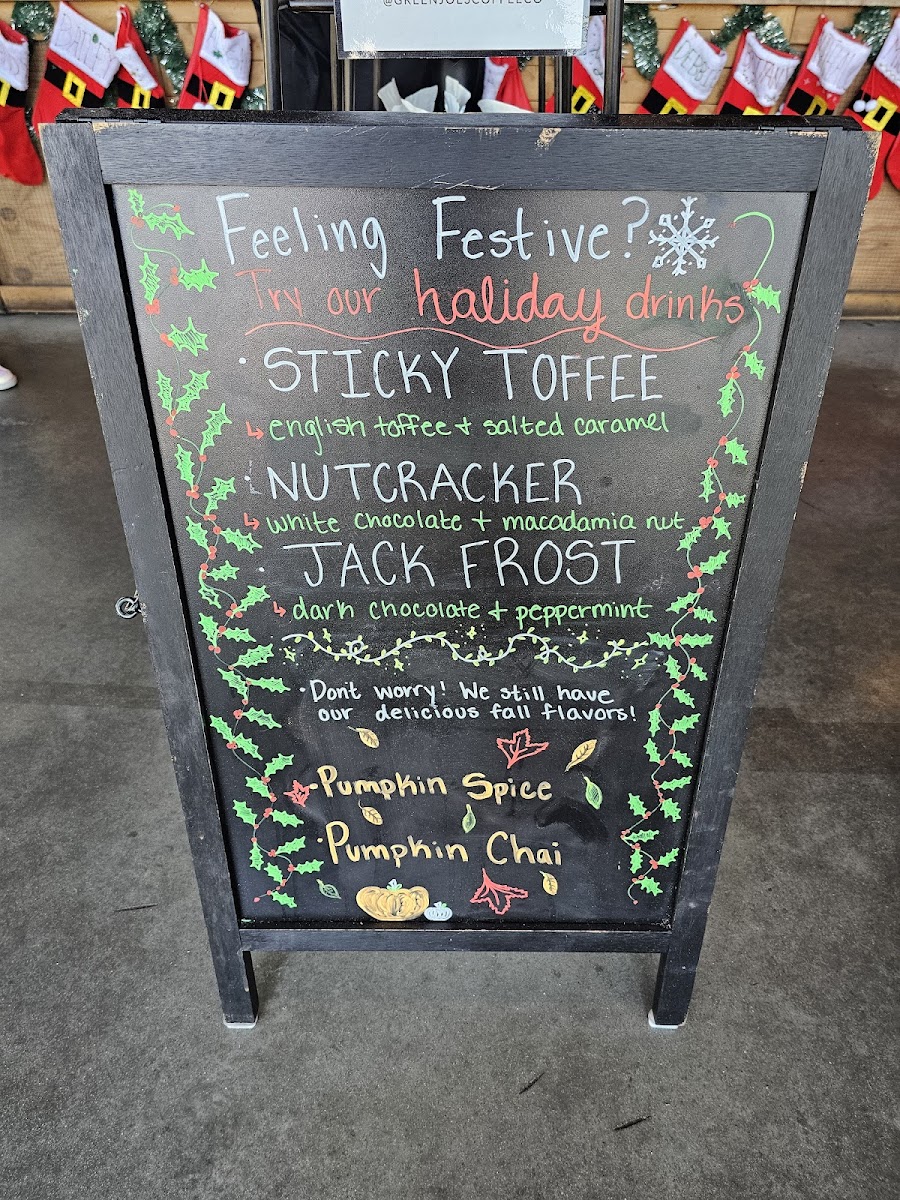 @GREENJOESCOFFEECO
Feeling Festive?
Try our haliday drinks
· STICKY TOFFEE
↳ english toffee + salted caramel
· NUTCRACKER
↳ white chocolate + macadamia nut
· JACK FROST
↳ dark chocolate + peppermint
· Dont worry! We still have
our delicious fall flavors!
· Pumpkin Spice
· Pumpkin Chai